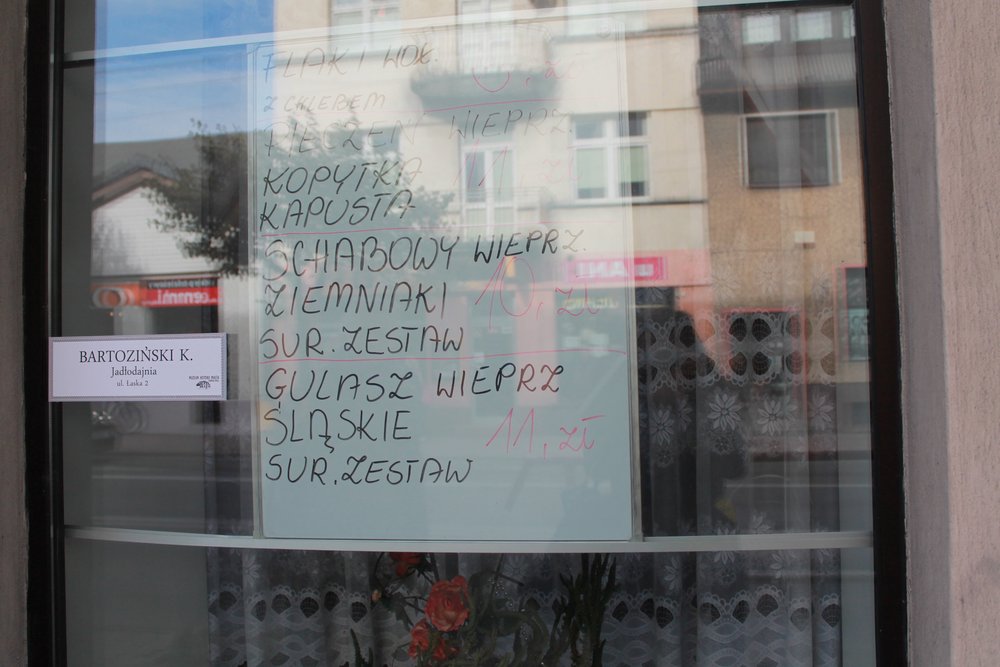 FLAKI WOŁ.
Z CHLEBEM
PIECZEŃ WIEPRZ.
KOPYTKA 11, zł
KAPUSTA
SCHABOWY WIEPRZ.
ZIEMNIAKI 10, zł
SUR. ZESTAW
GULASZ WIEPRZ
ŚLĄSKIE 11, zł
SUR. ZESTAW
BARTOZIŃSKI K.
Jadłodajnia
ul. Łaska 2